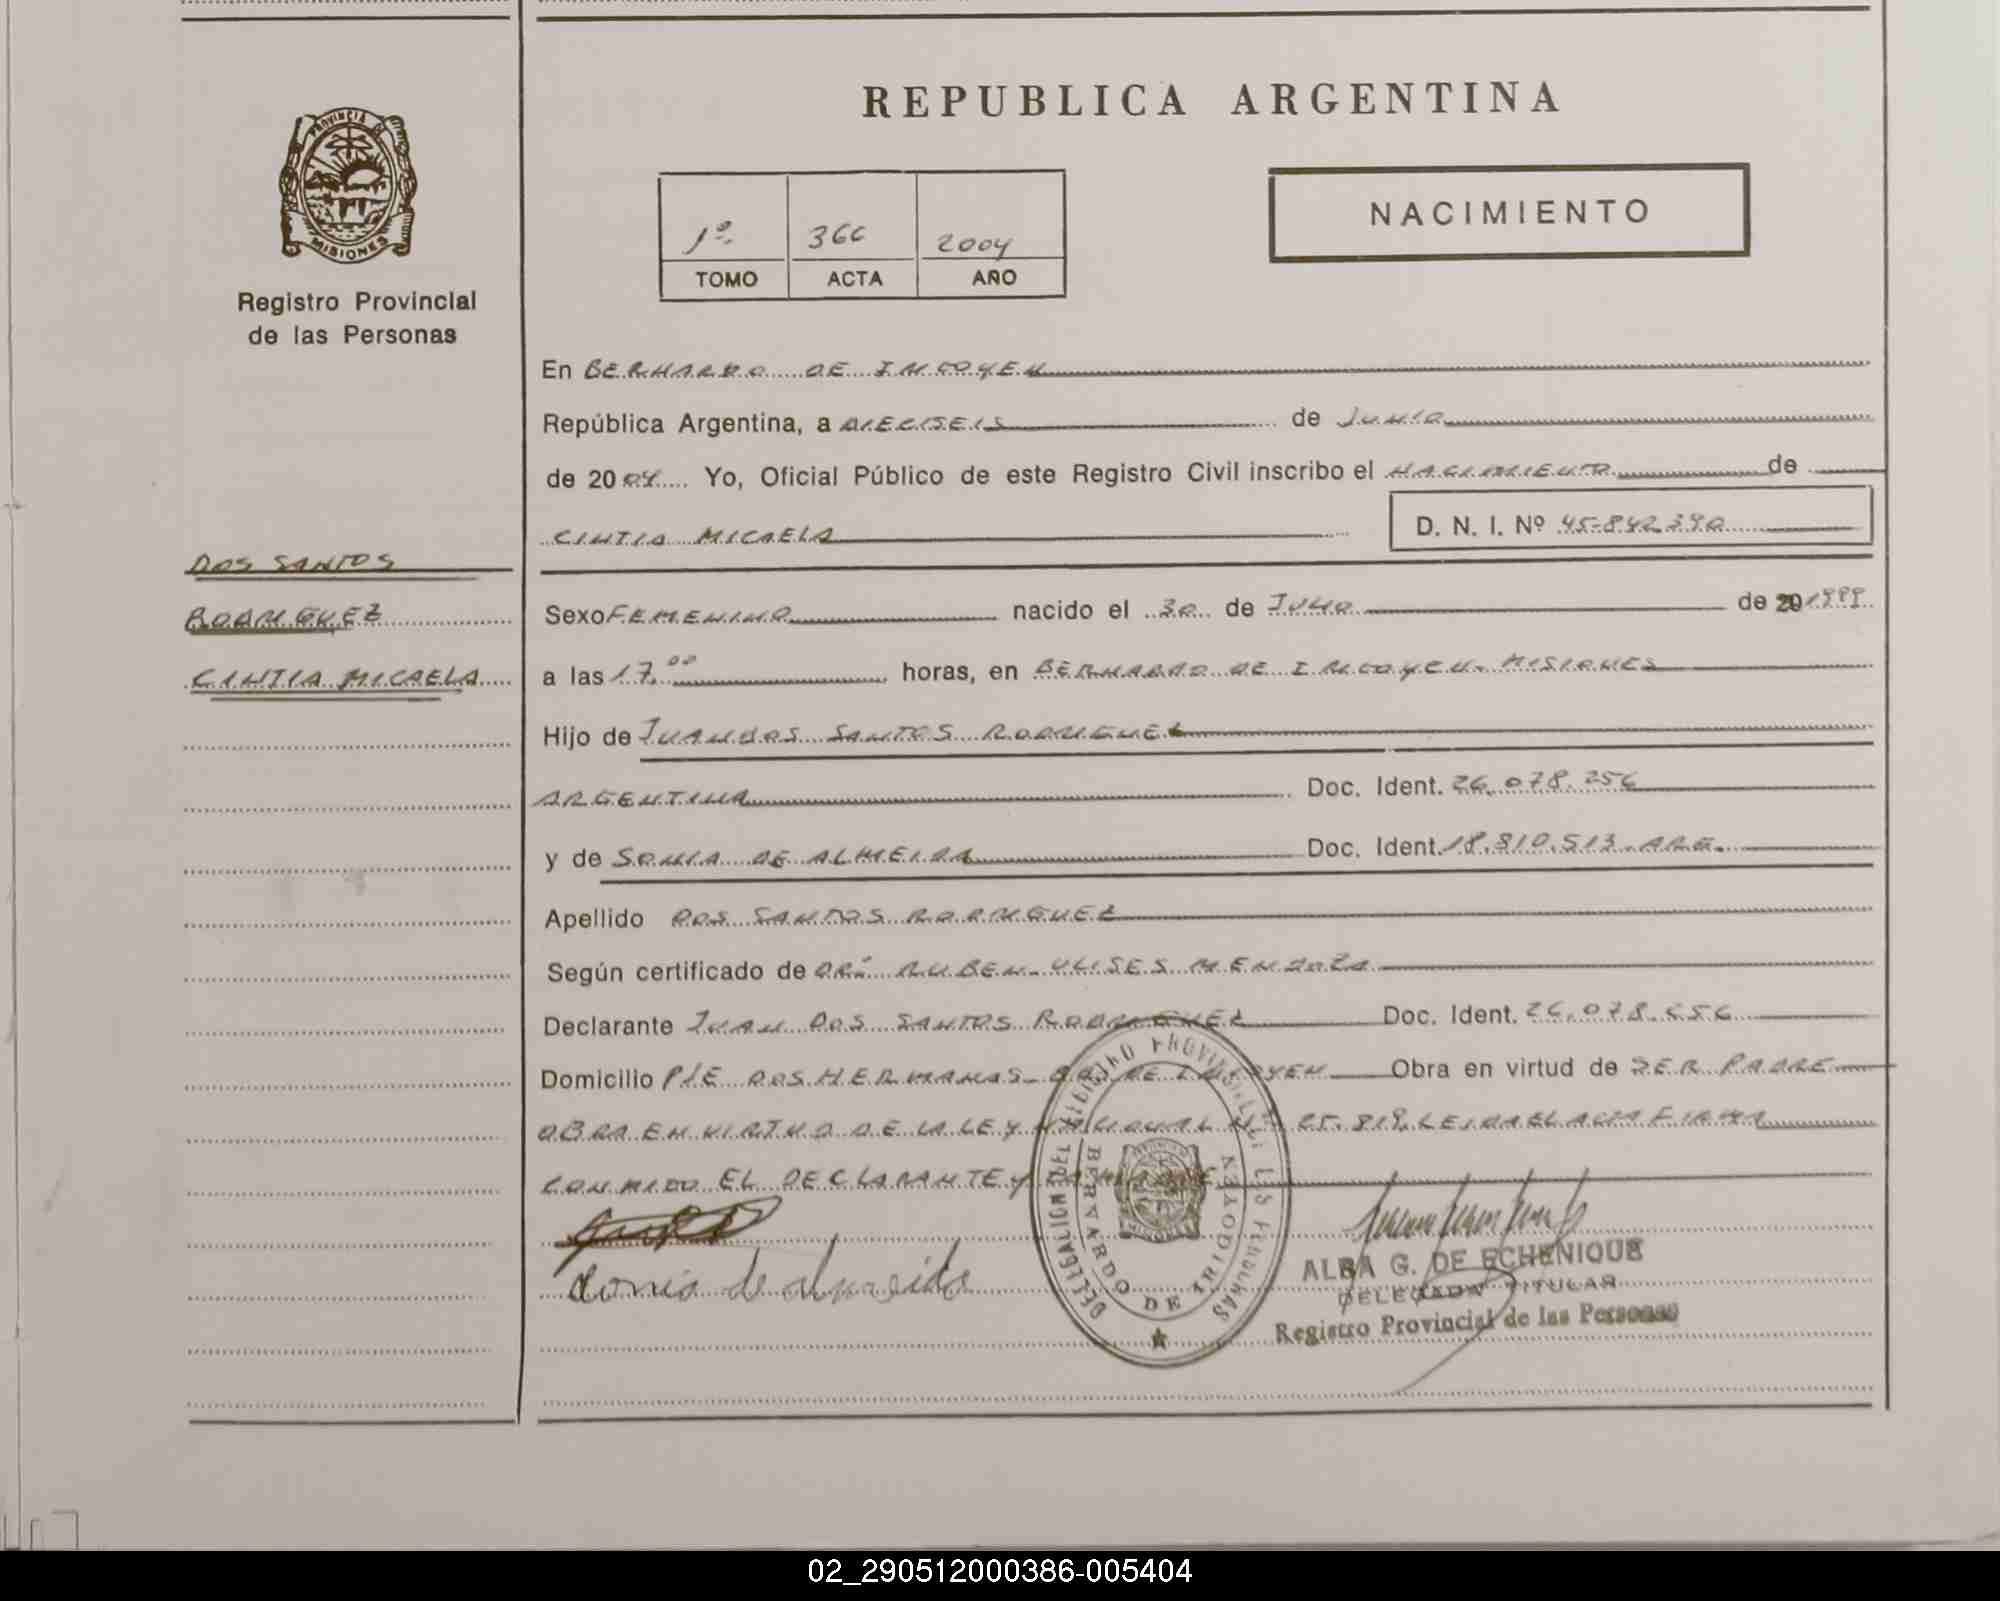 REPUBLICA ARGENTINA
PROVINCIA DE
MISIONES
Registro Provincial
de las Personas
NACIMIENTO
1º 366 2004
TOMO ACTA AÑO
En BERNARDO DE IRIGOYEN
República Argentina, a DIECISEIS de JUNIO
de 2004 Yo, Oficial Público de este Registro Civil inscribo el NACIMIENTO de
CINTIA MICAELA D. N. I. Nº 45.842.390
DOS SANTOS
RODRIGUEZ
CINTIA MICAELA
Sexo FEMENINO nacido el 30 de JULIO de 20 1999
a las 17,00 horas, en BERNARDO DE IRIGOYEN. MISIONES
Hijo de JUAN DOS SANTOS RODRIGUEZ
ARGENTINA Doc. Ident. 26.078.256
y de SONIA DE ALMEIDA Doc. Ident. 18.810.513. ARG.
Apellido DOS SANTOS RODRIGUEZ
Según certificado de DR. RUBEN ULISES MENDOZA
Declarante JUAN DOS SANTOS RODRIGUEZ Doc. Ident. 26.078.256
Domicilio PJE DOS HERMANAS - DE IRIGOYEN Obra en virtud de SER PADRE
OBRA EN VIRTUD DE LA LEY NACIONAL Nº 25.819. LEIDA EL ACTA FIRMA
CONMIGO EL DECLARANTE Y LA MADRE
Sonia de almeida
DELEGACION DEL REGISTRO PROVINCIAL DE LAS PERSONAS
BERNARDO DE IRIGOYEN
ALBA G. DE ECHENIQUE
DELEGADA TITULAR
Registro Provincial de las Personas
02_290512000386-005404